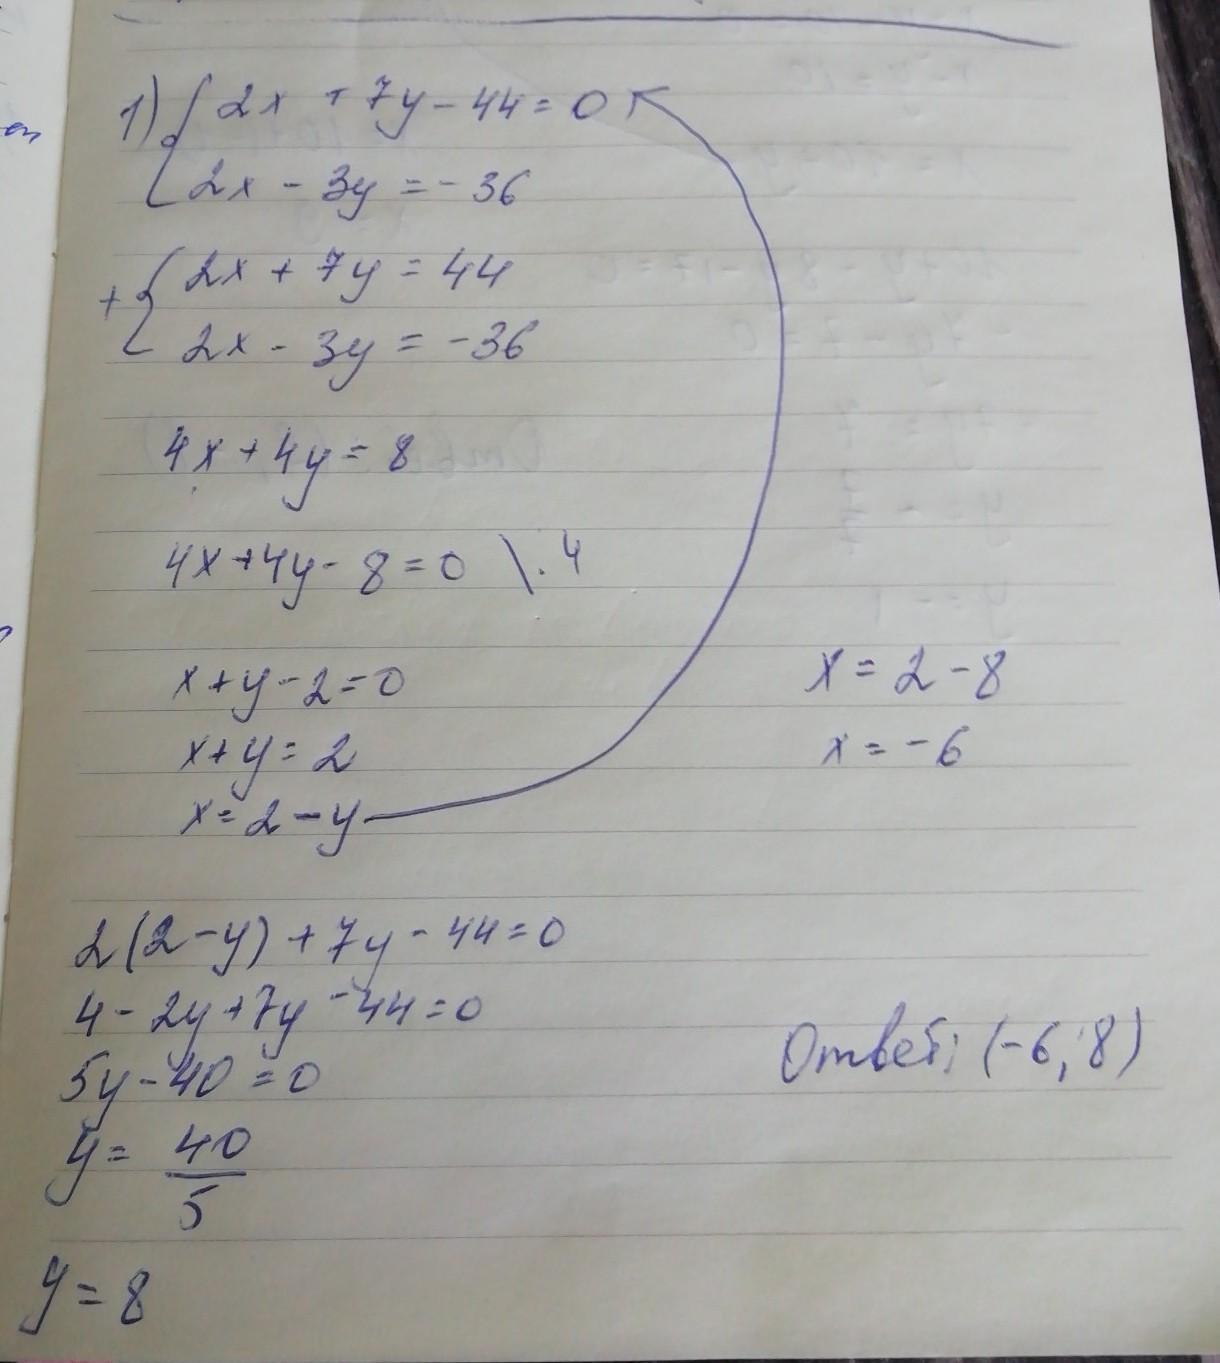 1) { 2x + 7y - 44 = 0
2x - 3y = - 36
+ { 2x + 7y = 44
2x - 3y = -36
4x + 4y = 8
4x + 4y - 8 = 0 \: 4
x + y - 2 = 0
x + y = 2
x = 2 - y
2(2 - y) + 7y - 44 = 0
4 - 2y + 7y - 44 = 0
5y - 40 = 0
y = 40/5
y = 8
x = 2 - 8
x = -6
Ответ: (-6; 8)